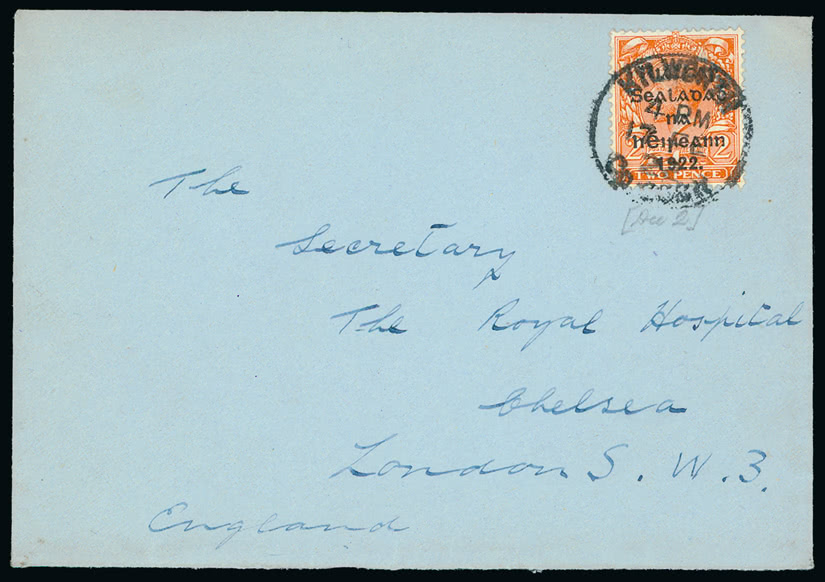 KILWORTH
Sealadaċ
4 PM
na
17 FE
hÉireann
22
1922.
TWO PENCE
Co CORK
[Die 2]
The
Secretary
The Royal Hospital
Chelsea
London S. W. 3.
England